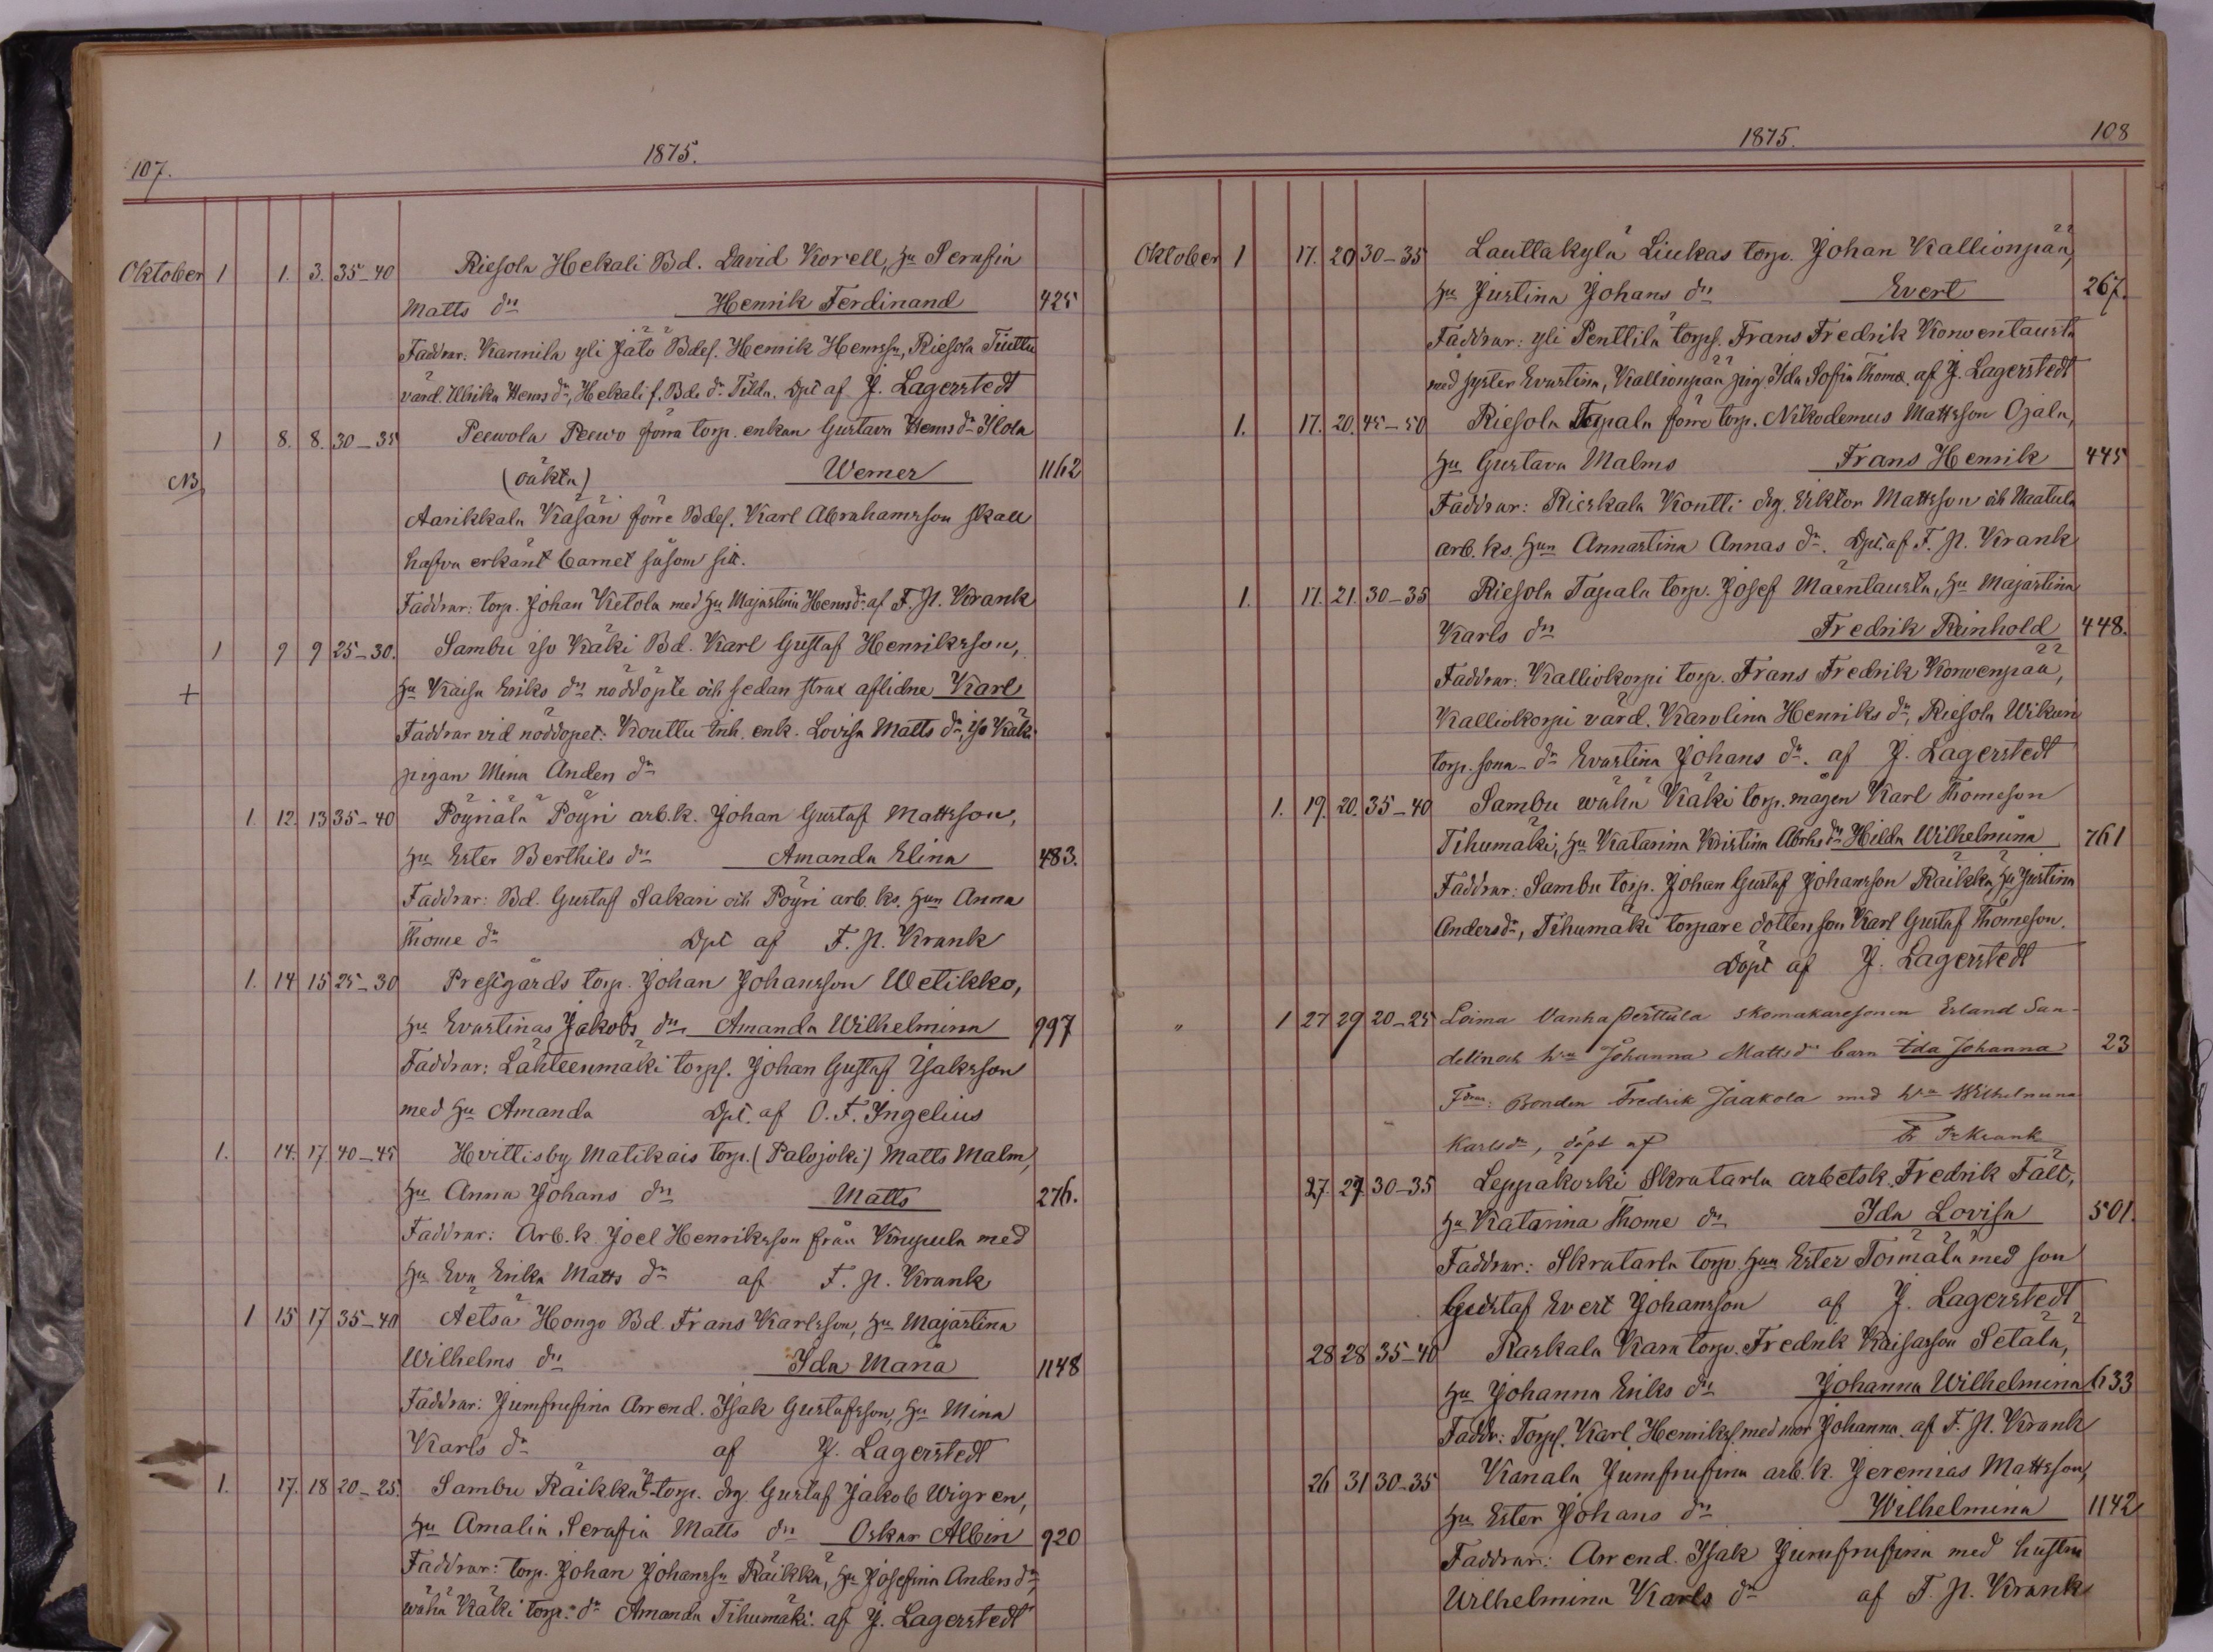 107.
1875.
Oktober 1 1. 3. 35-40 Riesola Hekali Bd. David Korell, hu Serafia
Matts dr Henrik Ferdinand 425
Faddrar: Kannila yli Jätö Bdes. Henrik Henrssn, Riesola Tiuttu
värd. Ulrika Henrs dr, Hekali f. Bds dr Tilda. Dpt af J. Lagerstedt
1 8. 8. 30-35 Peewola Peewo förra torp. enkan Gustava Henrs dr Ylola
NB (oäkta) Werner 1162
Aarikkala Käsäri förre Bdes. Karl Abrahamsson skall
hafva erkänt barnet såsom sitt.
Faddrar: torp. Johan Kietola med hu Majastina Henrs dr af F. N. Krank
1 9 9 25-30. Sambu iso Käki Bd. Karl Gustaf Henriksson,
+ hu Kaisa Eriks dr nöddöpte och sedan strax aflidne Karl
Faddrar vid nöddopet: Kouttu Inh. enk. Lovisa Matts dr, iso Käki
pigan Mina Anders dr
1. 12. 13 35-40 Pöyriälä Pöyri arb.k. Johan Gustaf Mattsson,
hu Ester Berthils dr Amanda Elina 483.
Faddrar: Bd. Gustaf Sakari och Pöyri arb. ks. hun Anna
Thome dr Dpt af F. N. Krank
1. 14 15 25-30 Prestgårds torp. Johan Johansson Wetikko,
hu Evastinas Jakobs dr Amanda Wilhelmina 997
Faddrar: Lähteenmäki torps. Johan Gustaf Isaksson
med hu Amanda Dpt. af O. F. Ingelius
1. 14. 17. 40-45 Hvittisby Matikais torp. (Palojoki) Matts Malm,
hu Anna Johans dr Matts 276.
Faddrar: Arb. k. Joel Henriksson från Kirupula med
hu Eva Erika Matts dr af F. N. Krank
1 15 17 35-40 Aetsä Hongo Bd. Frans Karlsson, hu Majastina
Wilhelms dr Ida Maria 1148
Faddrar: Jumfrufina Arrend. Isak Gustafsson, hu Mina
Karls dr af J. Lagerstedt
1. 17. 18 20-25. Sambu Räikkä torp. drg Gustaf Jakob Wigren,
hu Amalia Serafia Matts dr Oskar Albin 920
Faddrar: torp. Johan Johanssn Räikkä, hu Josefina Anders dr,
wähä Käki torp. dr Amanda Tihumäki. af J. Lagerstedt
1875.
108
Oktober 1 17. 20 30-35 Lauttakylä Liukas torp. Johan Kallionpää,
hu Justina Johans dr Evert 267.
Faddrar: yli Penttilä torps. Frans Fredrik Korwentausta
med syster Evastina, Kallionpää pig. Ida Sofia Thome. af J. Lagerstedt
1. 17. 20. 45-50 Riesola Tapala förre torp. Nikodemus Mattsson Ojala,
hu Gustava Malms Frans Henrik 445
Faddrar: Rieskala Kontti drg. Viktor Mattsson och Naatula
arb. ks. hun Annastina Annas dr. Dpt. af F. N. Krank
1. 17. 21. 30-35 Riesola Tapala torp. Josef Mäentausta, hu Majastina
Karls dr Fredrik Reinhold 448.
Faddrar: Kalliokorpi torp. Frans Fredrik Korwenpää,
Kalliokorpi värd. Karolina Henriks dr, Riesola Wikari
torp. sona-dr Evastina Johans dr. af J. Lagerstedt
1. 19. 20. 35-40 Sambu wähä Käki torp. mågen Karl Thomeson
Tihumäki, hu Katarina Kristina Abrhs dr Hilda Wilhelmina 761
Faddrar: Sambu torp. Johan Gustaf Johansson Räikkä, hu Justina
Anders dr, Tihumäki torpare dotten son Karl Gustaf Thomeson.
Döpt af J. Lagerstedt
" 1 27 29 20-25 Loima Vanhaperttula skomakaresonen Erland San-
delin och hru Johanna Matts dr barn Ida Johanna 23
Fdrar: Bonden Fredrik Jaakola med hru Wilhelmina
Karls dr, döpt af F Krank
27. 29. 30-35 Leppäkoski Skratarla arbetsk. Fredrik Fält,
hu Katarina Thome dr Ida Lovisa 501.
Faddrar: Skratarla torp. hun Ester Törmälä med son
Gustaf Evert Johansson af J. Lagerstedt
28 28 35-40 Raskala Kara torp. Fredrik Kaisasson Setälä,
hu Johanna Eriks dr Johanna Wilhelmina 633
Faddr: Torps. Karl Henrikss. med mor Johanna. af F. N. Krank
26 31 30-35 Kanala Jumfrufina arb. k. Jeremias Mattsson,
hu Ester Johans dr Wilhelmina 1142
Faddrar: Arrend. Isak Jumfrufina med hustru
Wilhelmina Karls dr af F. N. Krank